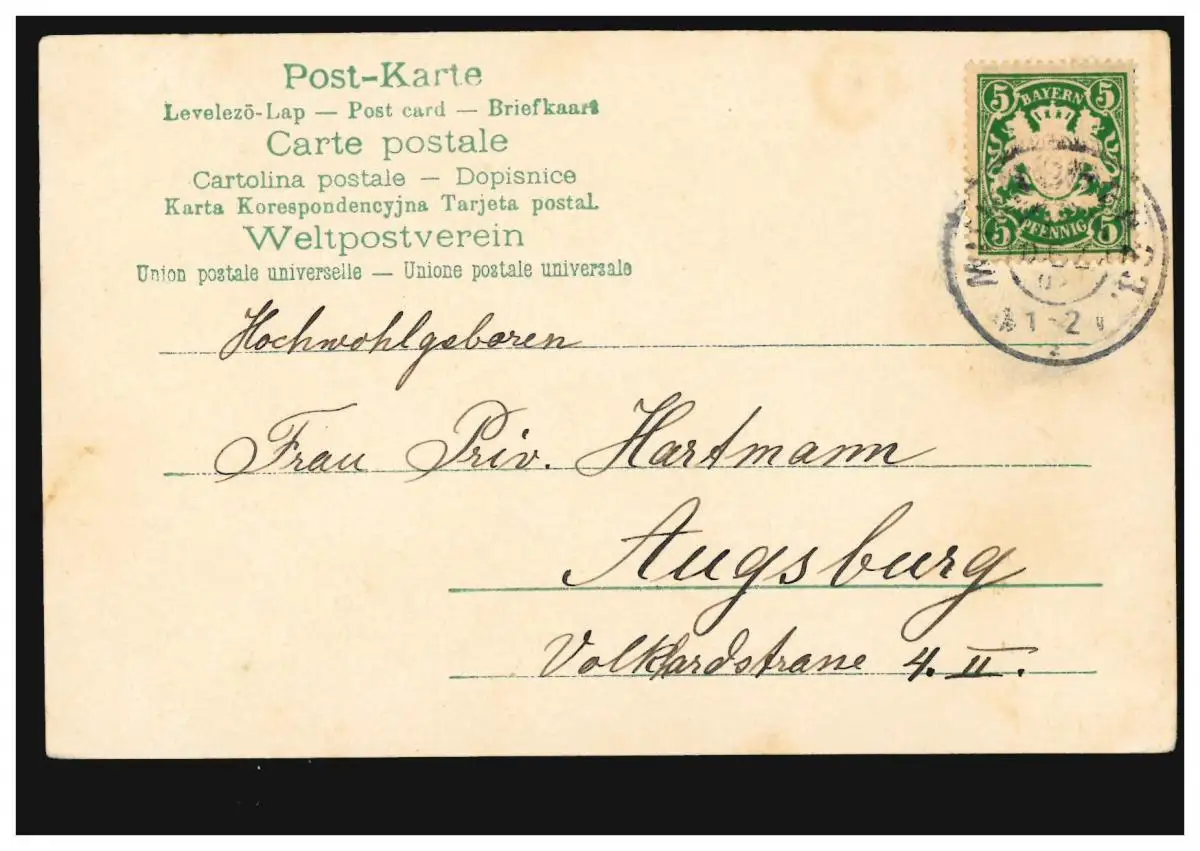 Post-Karte
Levelezö-Lap — Post card — Briefkaart
Carte postale
Cartolina postale — Dopisnice
Karta Korespondencyjna Tarjeta postal
Weltpostverein
Union postale universelle — Unione postale universale
5 BAYERN 5
5 PFENNIG 5
1-2
Hochwohlgeboren
Frau Priv. Hartmann
Augsburg
4. II.